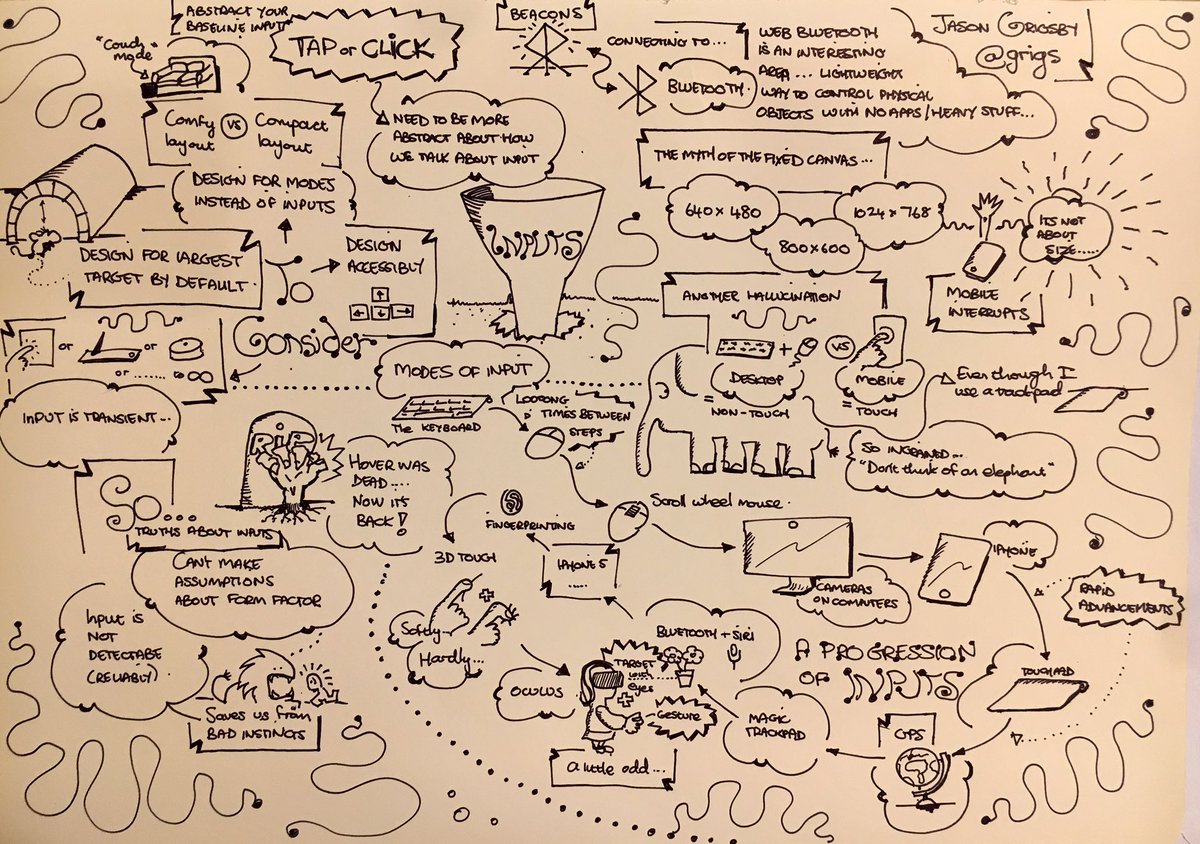 JASON GRIGSBY
@grigs
THE MYTH OF THE FIXED CANVAS...
640 x 480
800x600
1024 x 768
ITS NOT
ABOUT
SIZE......
MOBILE
INTERRUPTS
ANOTHER HALLUCINATION
+
VS
DESKTOP
= NON-TOUCH
MOBILE
= TOUCH
Even though I
use a trackpad
SO INGRAINED...
"Don't think of an elephant"
INPUTS
MODES OF INPUT
The KEYBOARD
LOOOONG
TIMES BETWEEN
STEPS
Scroll wheel mouse.
CAMERAS
ON COMPUTERS
IPHONE
RAPID
ADVANCEMENTS
TOUCHPAD
A PROGRESSION
OF INPUTS
GPS
MAGIC
TRACKPAD
BLUETOOTH + SIRI
IPHONE 5
.....
FINGERPRINTING
3D TOUCH
Softly...
+
Hardly...
OCULUS
TARGET
with
eyes
+
GESTURE
a little odd...
HOVER WAS
DEAD....
NOW ITS
BACK!
SO...
TRUTHS ABOUT INPUTS
CAN'T MAKE
ASSUMPTIONS
ABOUT FORM FACTOR
Input is
NOT
DETECTABE
(RELIABLY)
Saves us from
BAD INSTINCTS
INPUT IS TRANSIENT...
or
or
or ....... to ∞
Consider
SO
DESIGN FOR LARGEST
TARGET BY DEFAULT.
DESIGN
ACCESSIBLY
DESIGN FOR MODES
INSTEAD OF INPUTS
Comfy
layout
VS
Compact
layout
"Couch
mode"
ABSTRACT YOUR
BASELINE INPUT
TAP or CLICK
NEED TO BE MORE
ABSTRACT ABOUT HOW
WE TALK ABOUT INPUT
BEACONS
CONNECTING TO...
BLUETOOTH.
WEB BLUETOOTH
IS AN INTERESTING
AREA... LIGHTWEIGHT
WAY TO CONTROL PHYSICAL
OBJECTS WITH NO APPS/HEAVY STUFF...